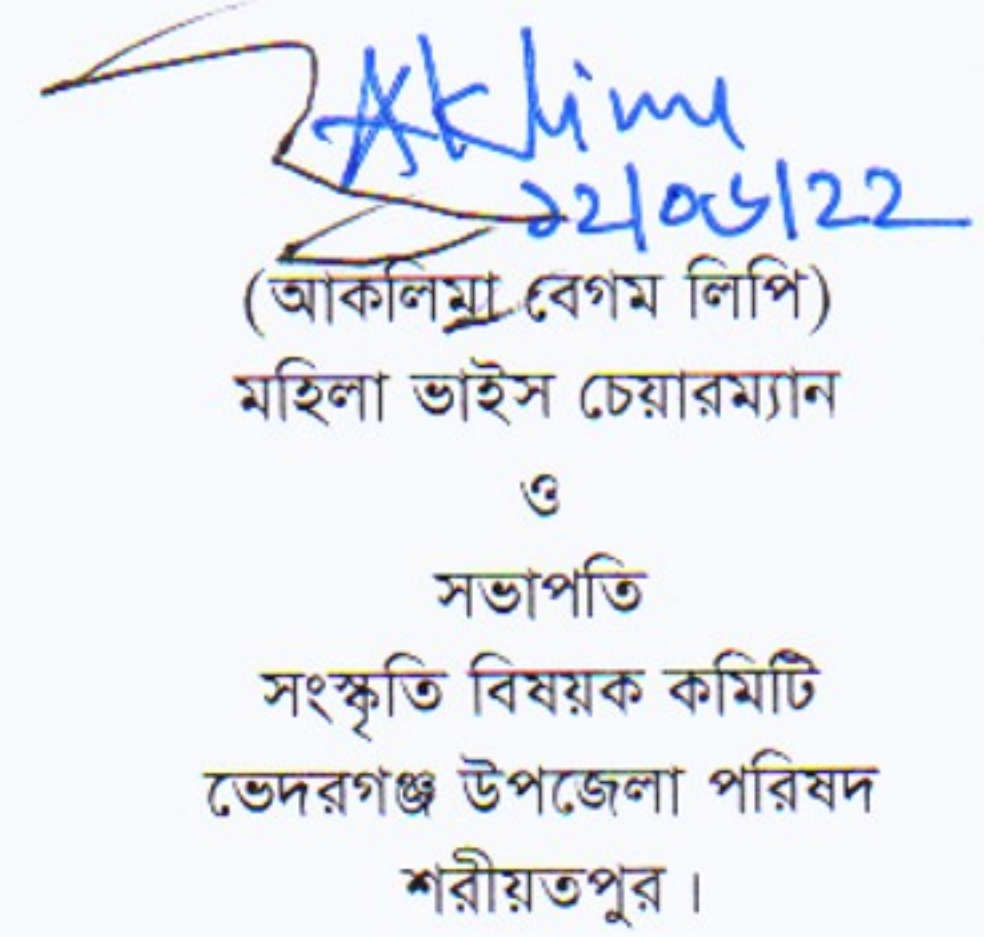 Aklima
22/06/22
(আকলিমা বেগম লিপি)
মহিলা ভাইস চেয়ারম্যান
ও
সভাপতি
সংস্কৃতি বিষয়ক কমিটি
ভেদরগঞ্জ উপজেলা পরিষদ
শরীয়তপুর।